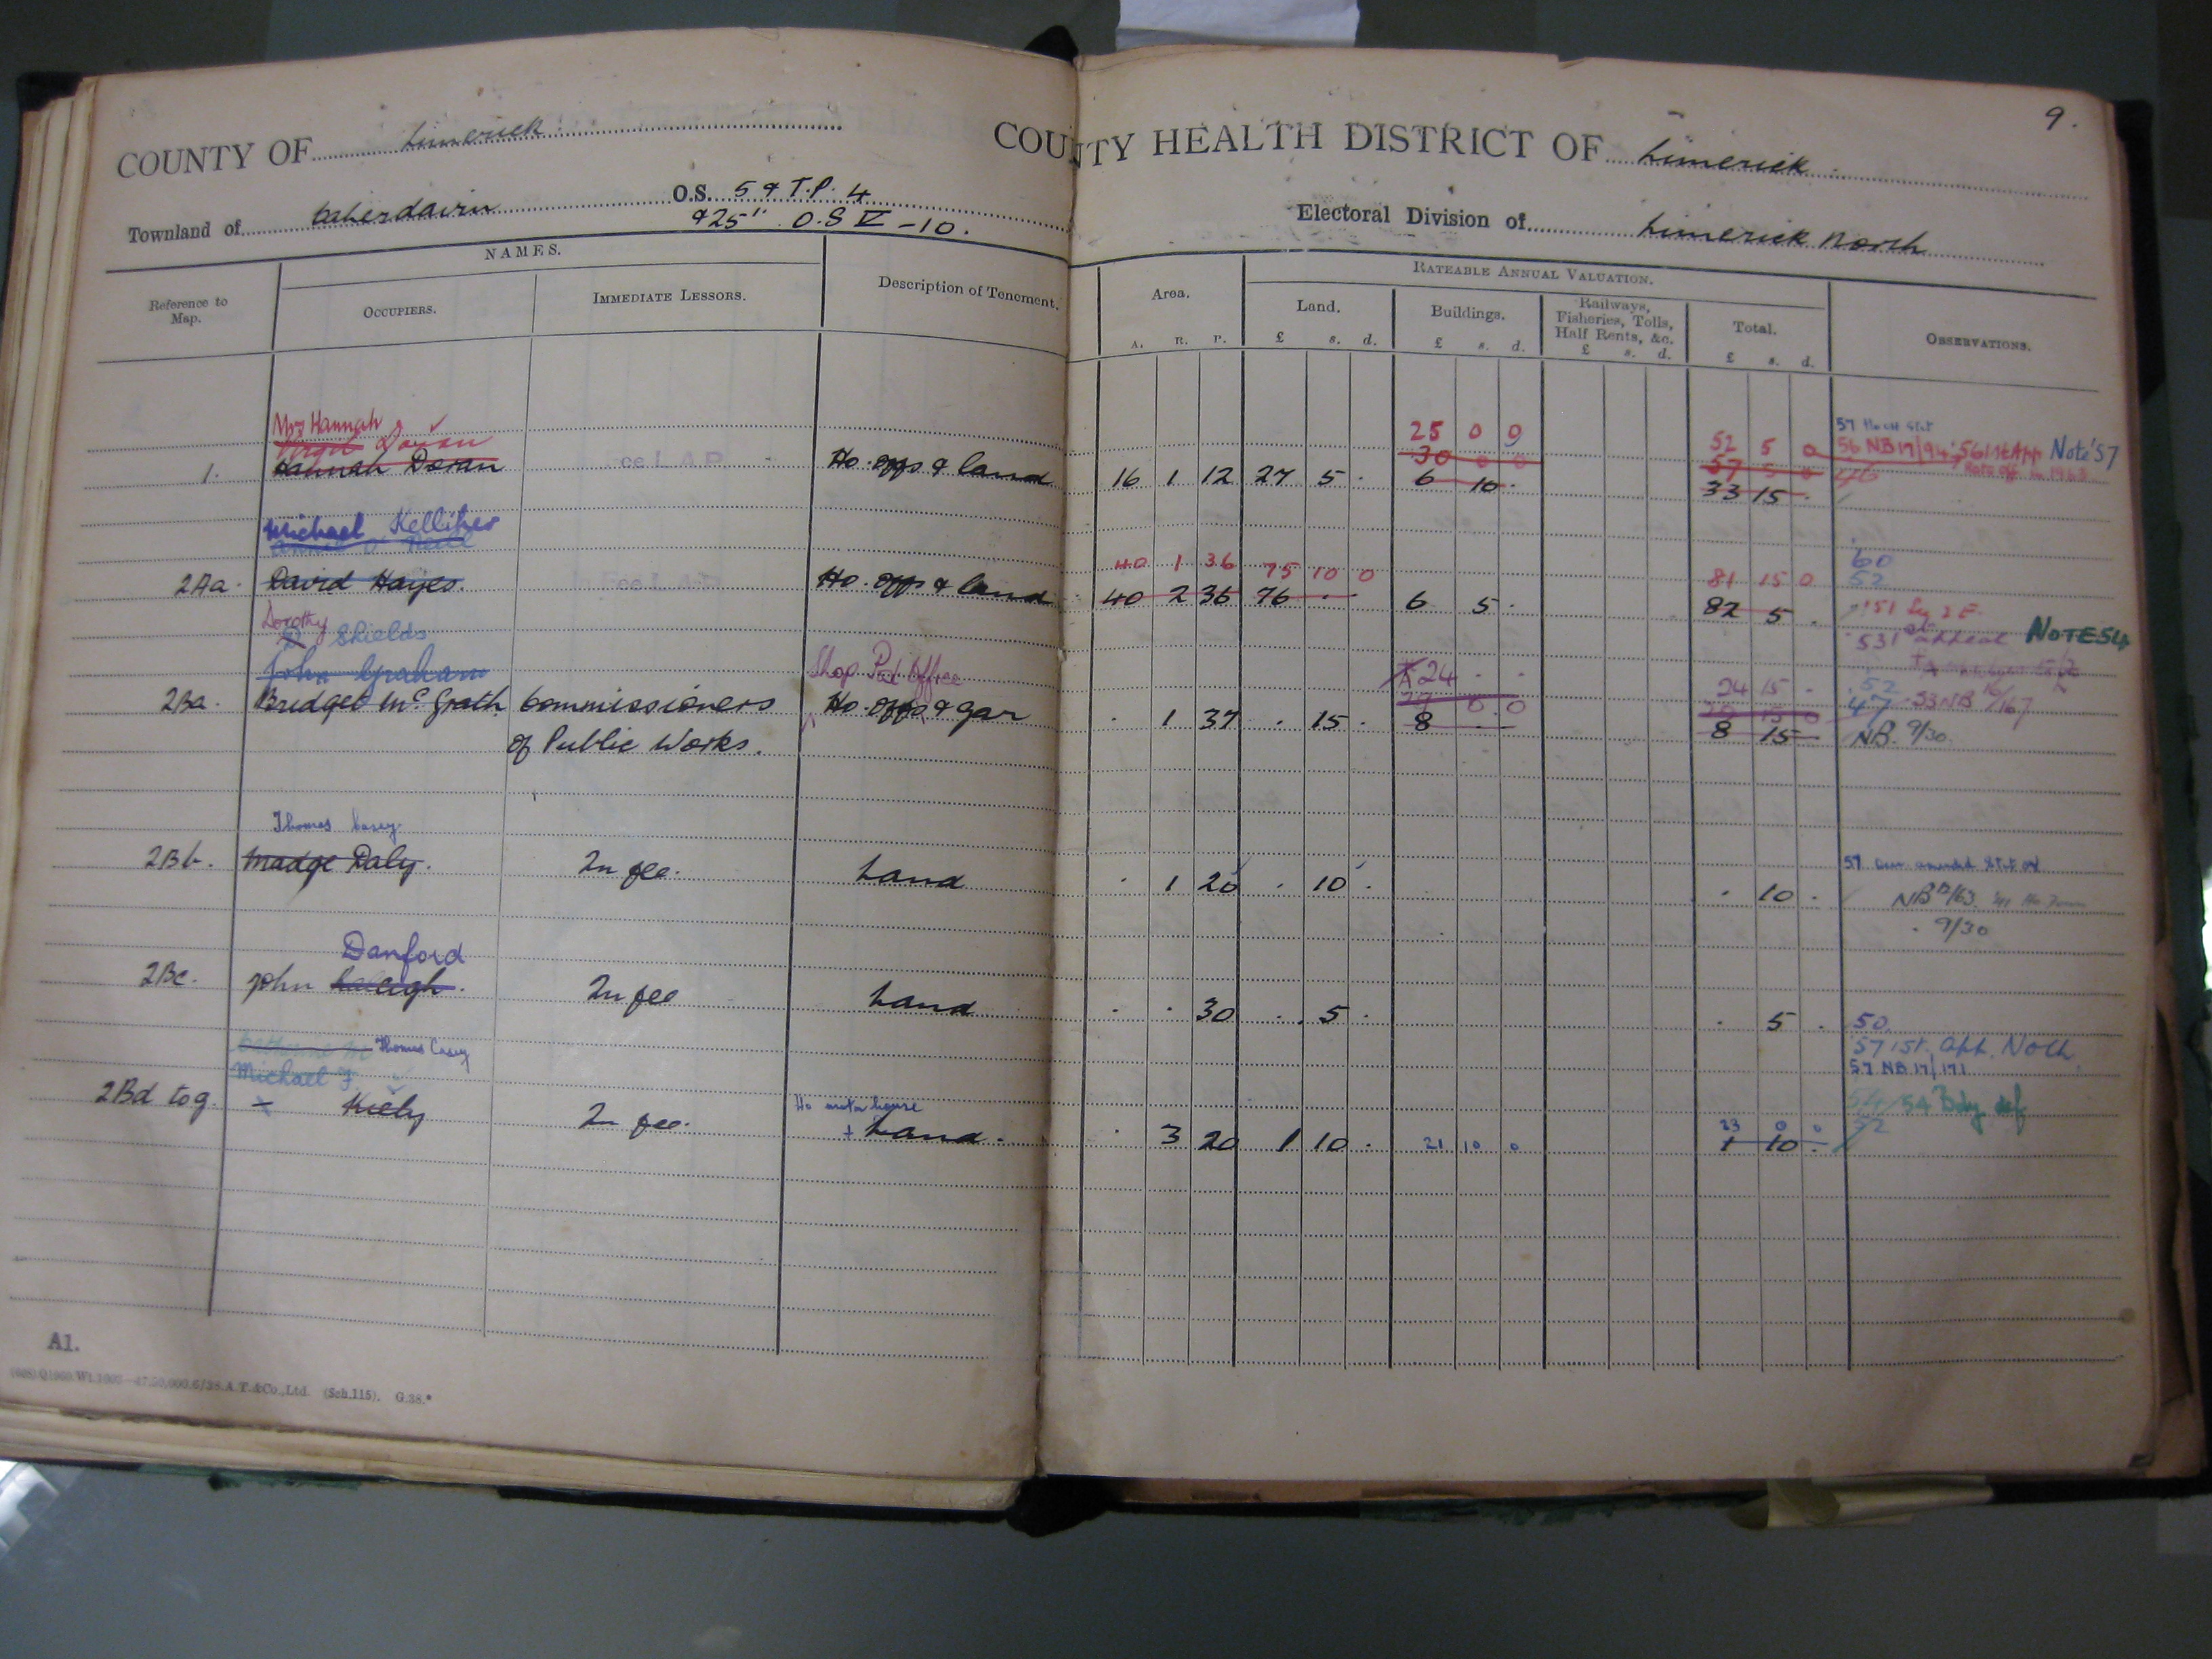 9.
COUNTY OF Limerick COUNTY HEALTH DISTRICT OF Limerick.
Townland of Caherdavin O.S. 5 & T.P. 4 Electoral Division of Limerick North
& 25" O.S V - 10.
NAMES. RATEABLE ANNUAL VALUATION.
Reference to Map. OCCUPIERS. IMMEDIATE LESSORS. Description of Tenement. Area. Land. Buildings. Railways, Fisheries, Tolls, Half Rents, &c. Total. OBSERVATIONS.
A. R. P. £ s. d. £ s. d. £ s. d. £ s. d.
Mrs Hannah 25 0 0 57
Virgil Doran 30 0 0 52 5 0 56 NB17/94 56 1st App Note '57
1. Hannah Doran Ho. offs & land 16 1 12 27 5 . 6 10 . 57 5 0 46
33 15 .
Michael Kelliher
Annie O'Neill 40 1 36 75 10 0 81 15 0 60
2Aa. David Hayes. Ho. offs & land 40 2 36 76 . . 6 5 . 82 5 . 52
Dorothy '51
D Shields 531 appeal NOTE 54
John Graham Shop Post Office 24 . . 24 15 . 52
2Ba. Bridget McGrath Commissioners Ho. offs & gar . 1 37 . 15 . 29 0 0 29 15 0 47 53NB 16/167
of Public Works. 8 . . 8 15 NB. 9/30
Thomas Casey.
2Bb. Madge Daly. In fee. Land . 1 20 . 10 . . 10 . 57
NB 17/63
9/30
Danford
2Bc. John Raleigh. In fee Land . . 30 . 5 . . 5 . 50
Thomas Casey 57 1st. App. Note
Michael F. 57 NB 17/171
2Bd to g. Kiely In fee. Ho motor house 54 Bdy. def
+ Land. . 3 20 1 10 . 21 10 0 23 0 0 52
1 10 .
A1.
(Sch.115). G.38.*